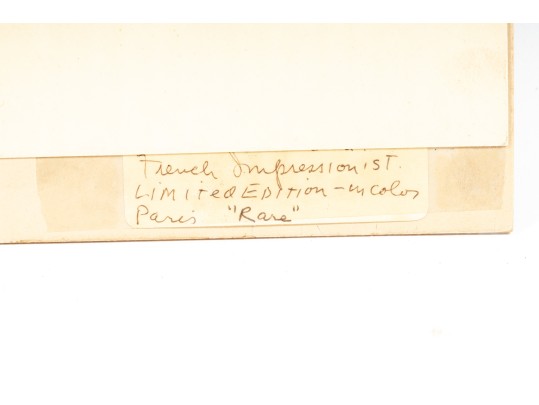 French Impressionist.
LiMited EDition - in color
Paris "Rare"